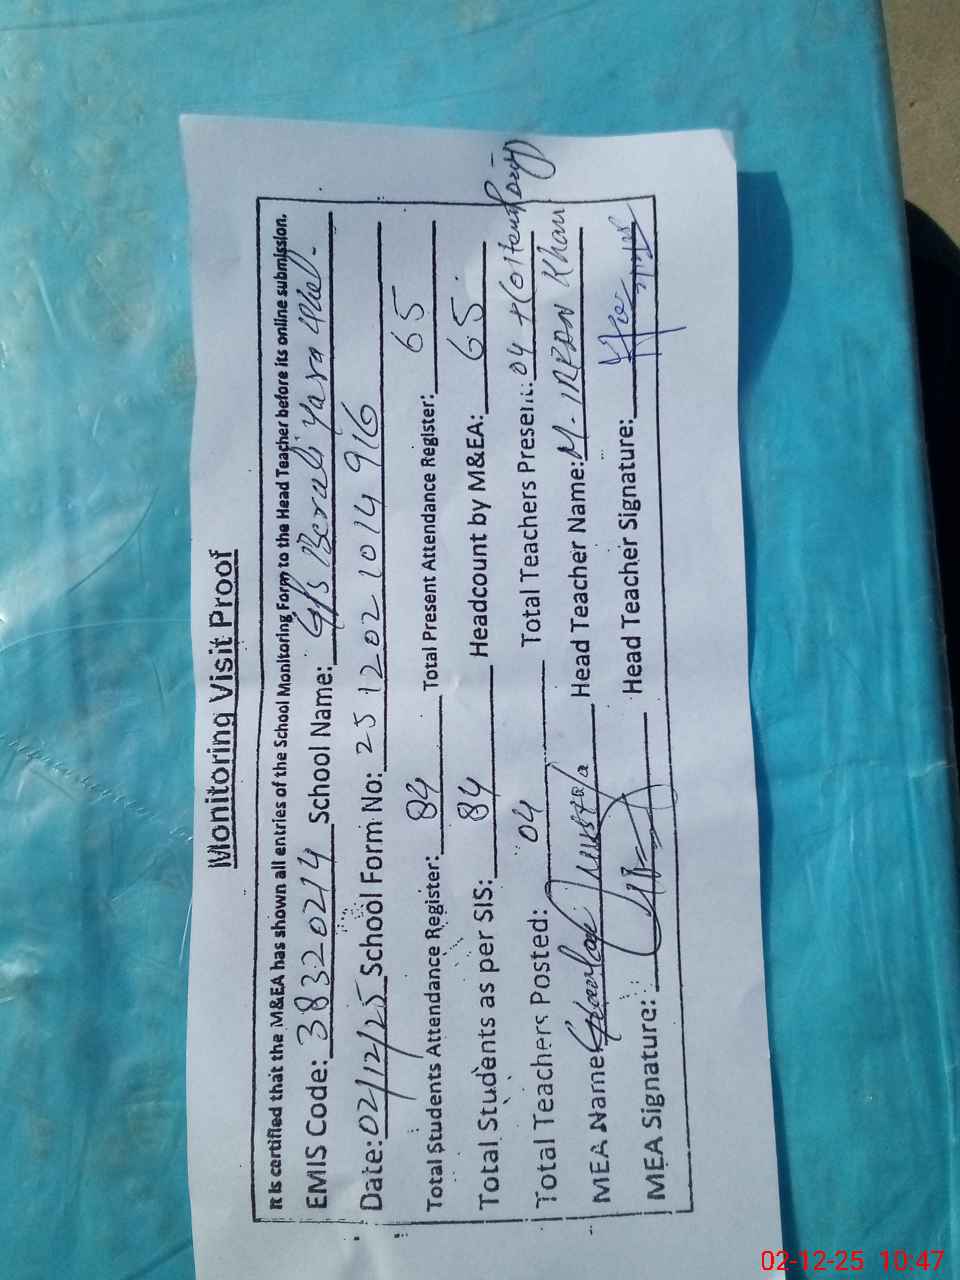 Monitoring Visit Proof
It is certified that the M&EA has shown all entries of the School Monitoring Form to the Head Teacher before its online submission.
EMIS Code: 38320214 School Name: G/S Berali Yara
Date: 02/12/25 School Form No: 251202 1014 916
Total Students Attendance Register: 84 Total Present Attendance Register: 65
Total Students as per SIS: 84 Headcount by M&EA: 65.
Total Teachers Posted: 04 Total Teachers Present: 04 +
MEA Name Mustafa Head Teacher Name: M. IRFAN Khan
MEA Signature: Head Teacher Signature:
02-12-25 10:47